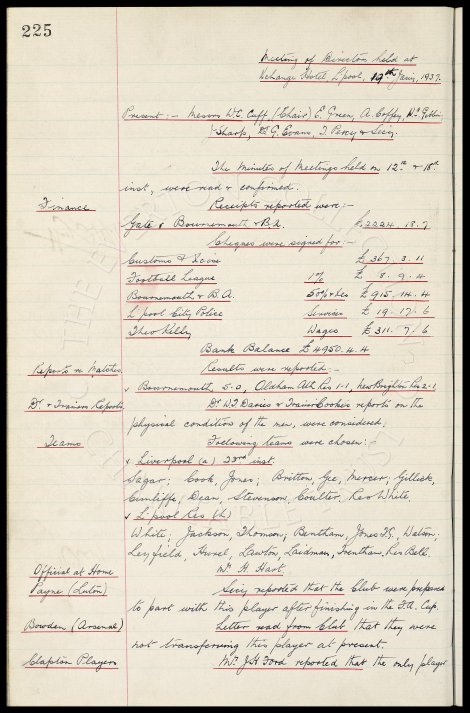 225
Meeting of Directors held at
Xchange Hotel L'pool, 19th Jany, 1937.
Present :- Messrs W.C. Cuff (Chair) E. Green, A. Coffey, Wm Gibbins
Sharp, Dr G. Evans, T. Percy & Secy.
The Minutes of Meetings held on 12th & 18th
inst, were read & confirmed.
Finance
Receipts reported were :-
Gate v Bournemouth & B.A. £2224. 18. 7
Cheques were signed for :-
Customs & Excise £ 367. 3. 11
Football League 1% £ 8. 9. 4
Bournemouth & B.A. 50% & exs £ 915. 14. 4
L'pool City Police Services £ 19. 17. 6
Theo Kelly Wages £ 311. 7. 6
Bank Balance £4950. 4. 4
Reports re Matches.
Results were reported :-
v Bournemouth, 5-0, Oldham Ath Res 1-1, New Brighton Res 2-1,
Dr. & Trainers Reports
Dr. D.J. Davies & Trainer Cooke's reports on the
physical condition of the men, were considered,
Teams
Following teams were chosen :-
v Liverpool (a) 23rd inst.
Sagar; Cook, Jones; Britton, Gee, Mercer; Gillick,
Cunliffe, Dean, Stevenson, Coulter, Res White,
v L'pool Res (h)
White; Jackson, Thomson; Bentham, Jones T.G., Watson;
Leyfield, Hurel, Lawton, Laidman, Trentham, Res Bell.
Official at Home
Mr. H. Hart,
Payne (Luton)
Secy reported that the Club were prepared
to part with this player after finishing in the F.A. Cup.
Bowden (Arsenal)
Letter read from Club that they were
not transferring this player at present.
Clapton Players
Mr. J.H. Ford reported that the only player